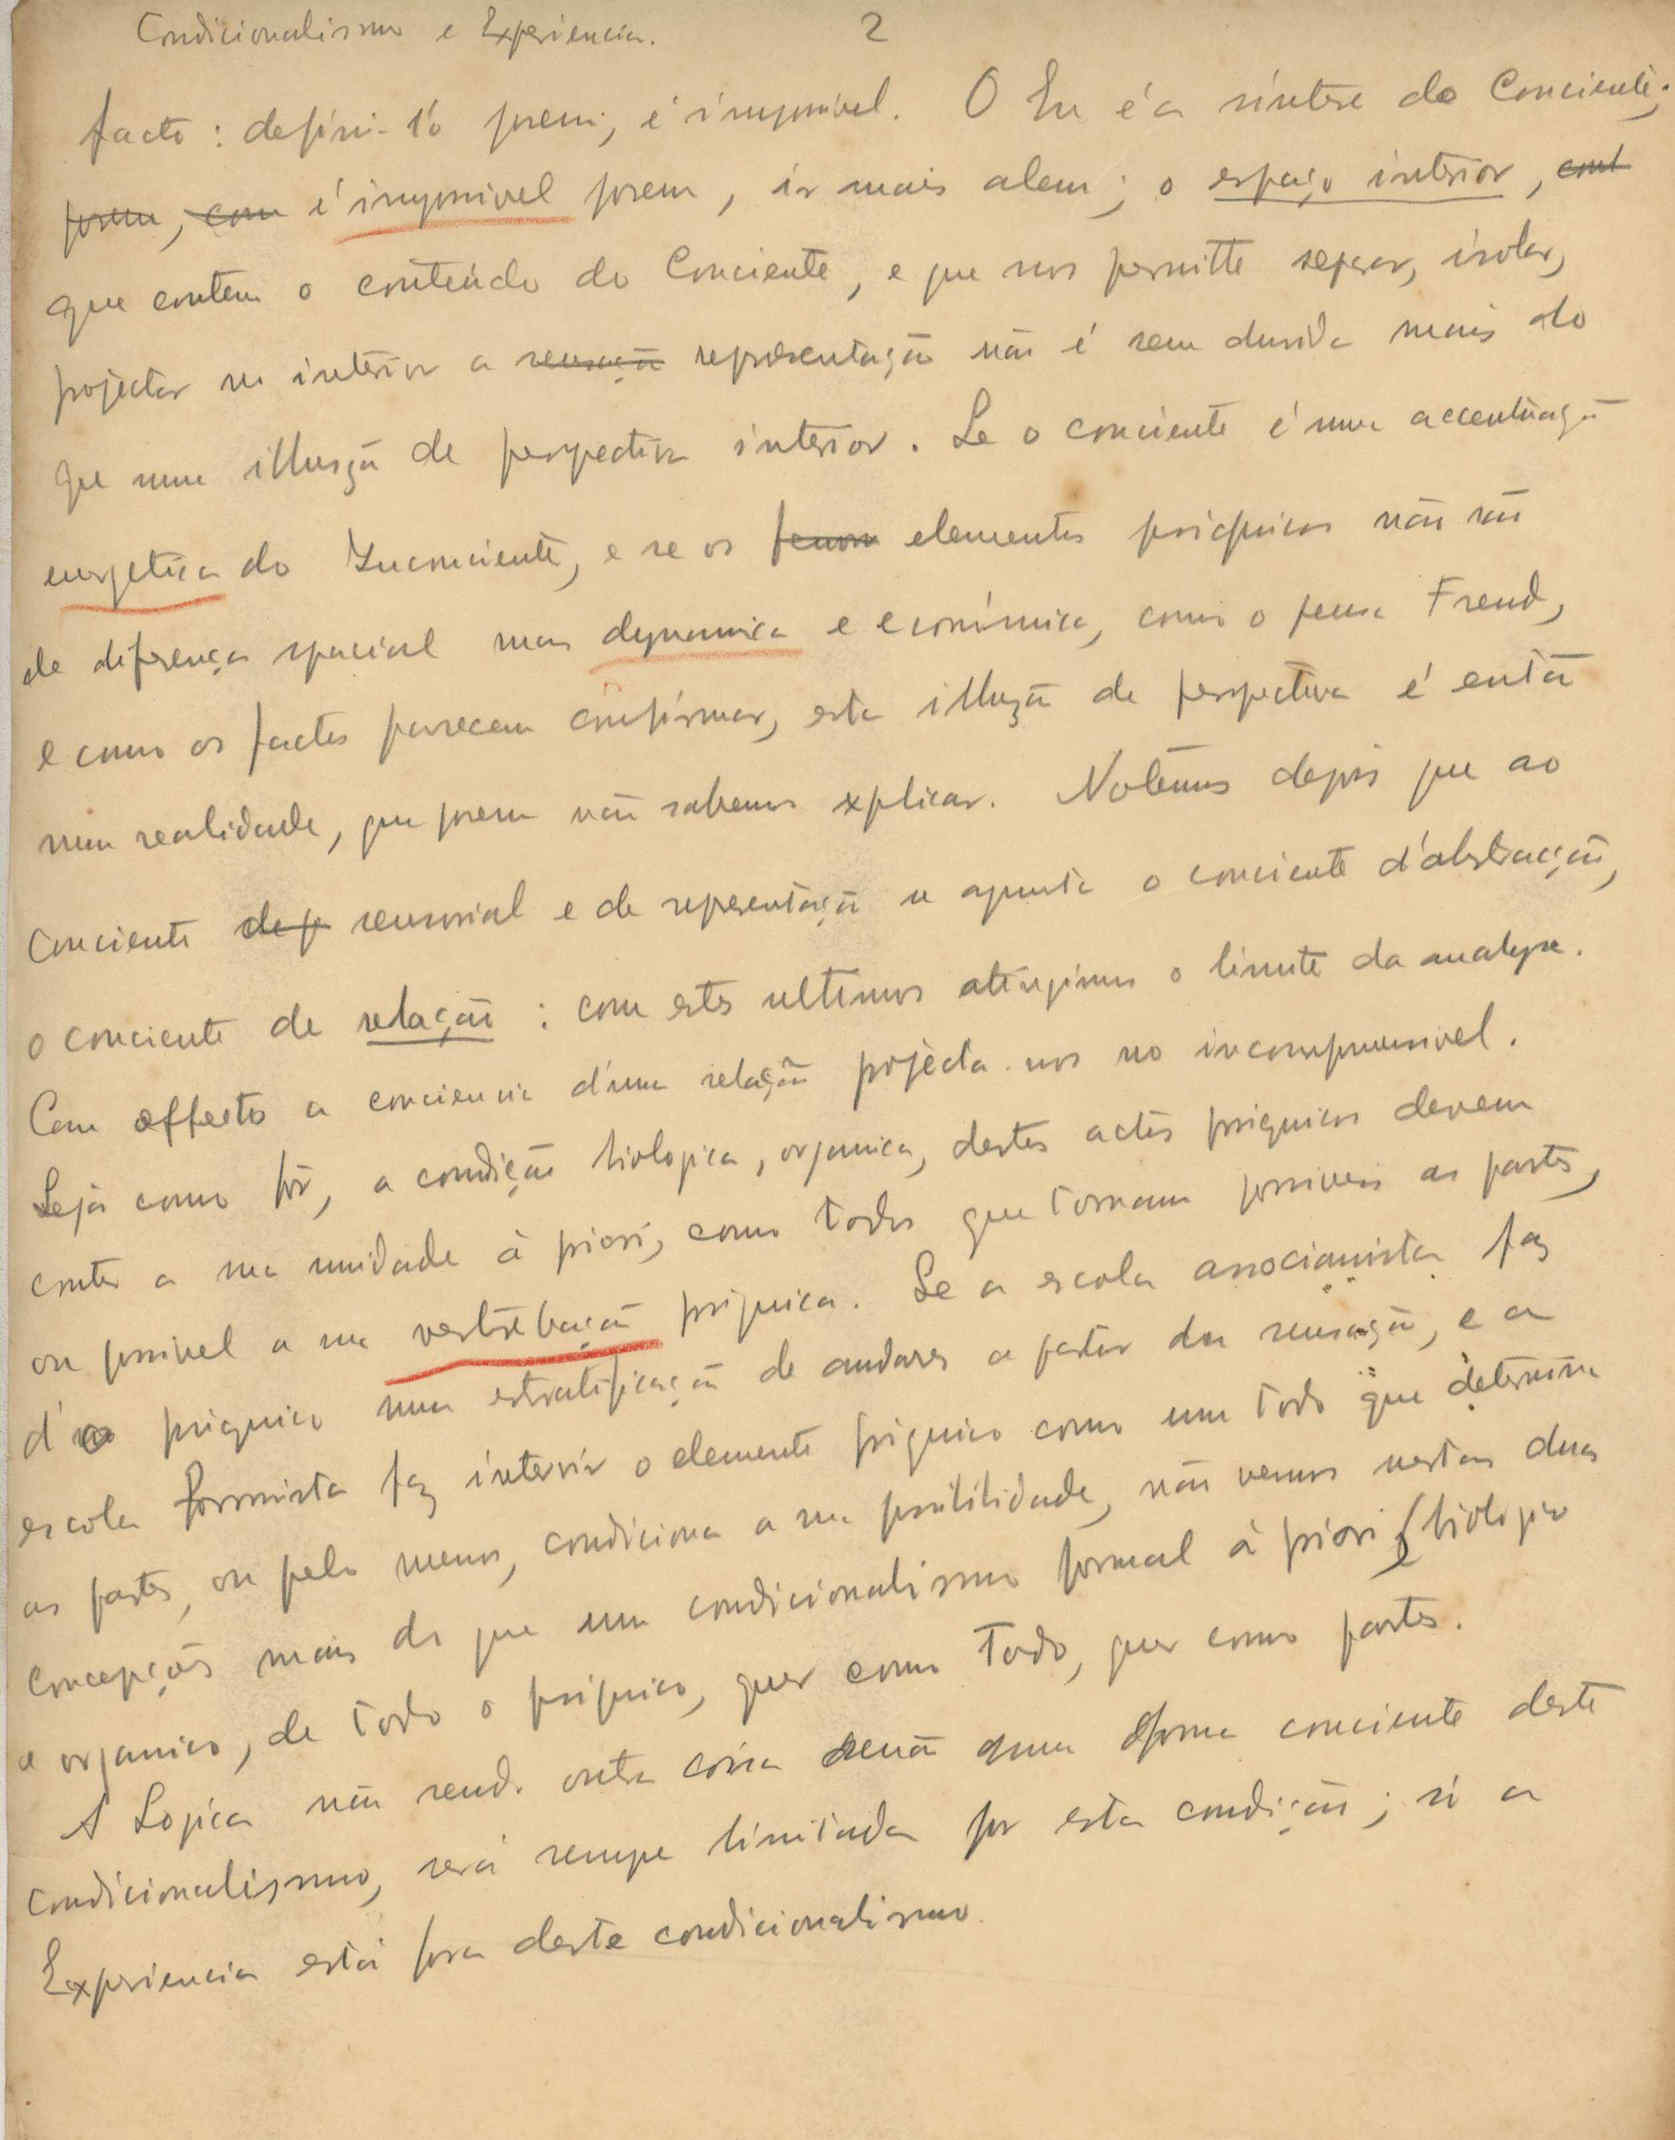 Condicionalismo e Experiencia. 2
facto: defini-l'o porem, é impossivel. O Eu é a sintese do Conciente;
porem, com é impossivel porem, ir mais alem; o espaço interior, cont
que contem o conteúdo do Conciente, e que nos permitte separar, isolar,
projectar no interior a sensação representação não é sem duvida mais do
que uma illusão de perspectiva interior. Se o conciente é uma accentuação
energetica do Inconciente, e se os fenom elementos psiquicos não são
de diferença spacial mas dynamica e económica, como o pensa Freud,
e como os factos parecem confirmar, esta illusão de perspectiva é então
uma realidade, que porem não sabemos explicar. Notêmos depois que ao
conciente de p sensorial e de representação se ajunta o conciente d'abstracção,
o conciente de relação: com estes ultimos atingimos o limite da analyse.
Com effecto a conciencia d'uma relação projecta-nos no incompreensivel.
Seja como fôr, a condição biologica, organica, destes actos psiquicos devem
conter a sua unidade à priori, como todos que tornam possiveis as partes,
ou possivel a sua vertebração psiquica. Se a escola associanista faz
d'o psiquico uma estratificação de andares a partir da sensação, e a
escola formista faz intervir o elemento psiquico como um todo que determina
as partes, ou pelo menos, condiciona a sua possibilidade, não vemos nestas duas
concepções mais do que um condicionalismo formal à priori, biologico
e organico, de todo o psiquico, quer como Todo, quer como partes.
A Logica não send. outra coisa senão uma forma conciente deste
condicionalismo, será sempre limitada por esta condição; só a
Experiencia está fora deste condicionalismo.